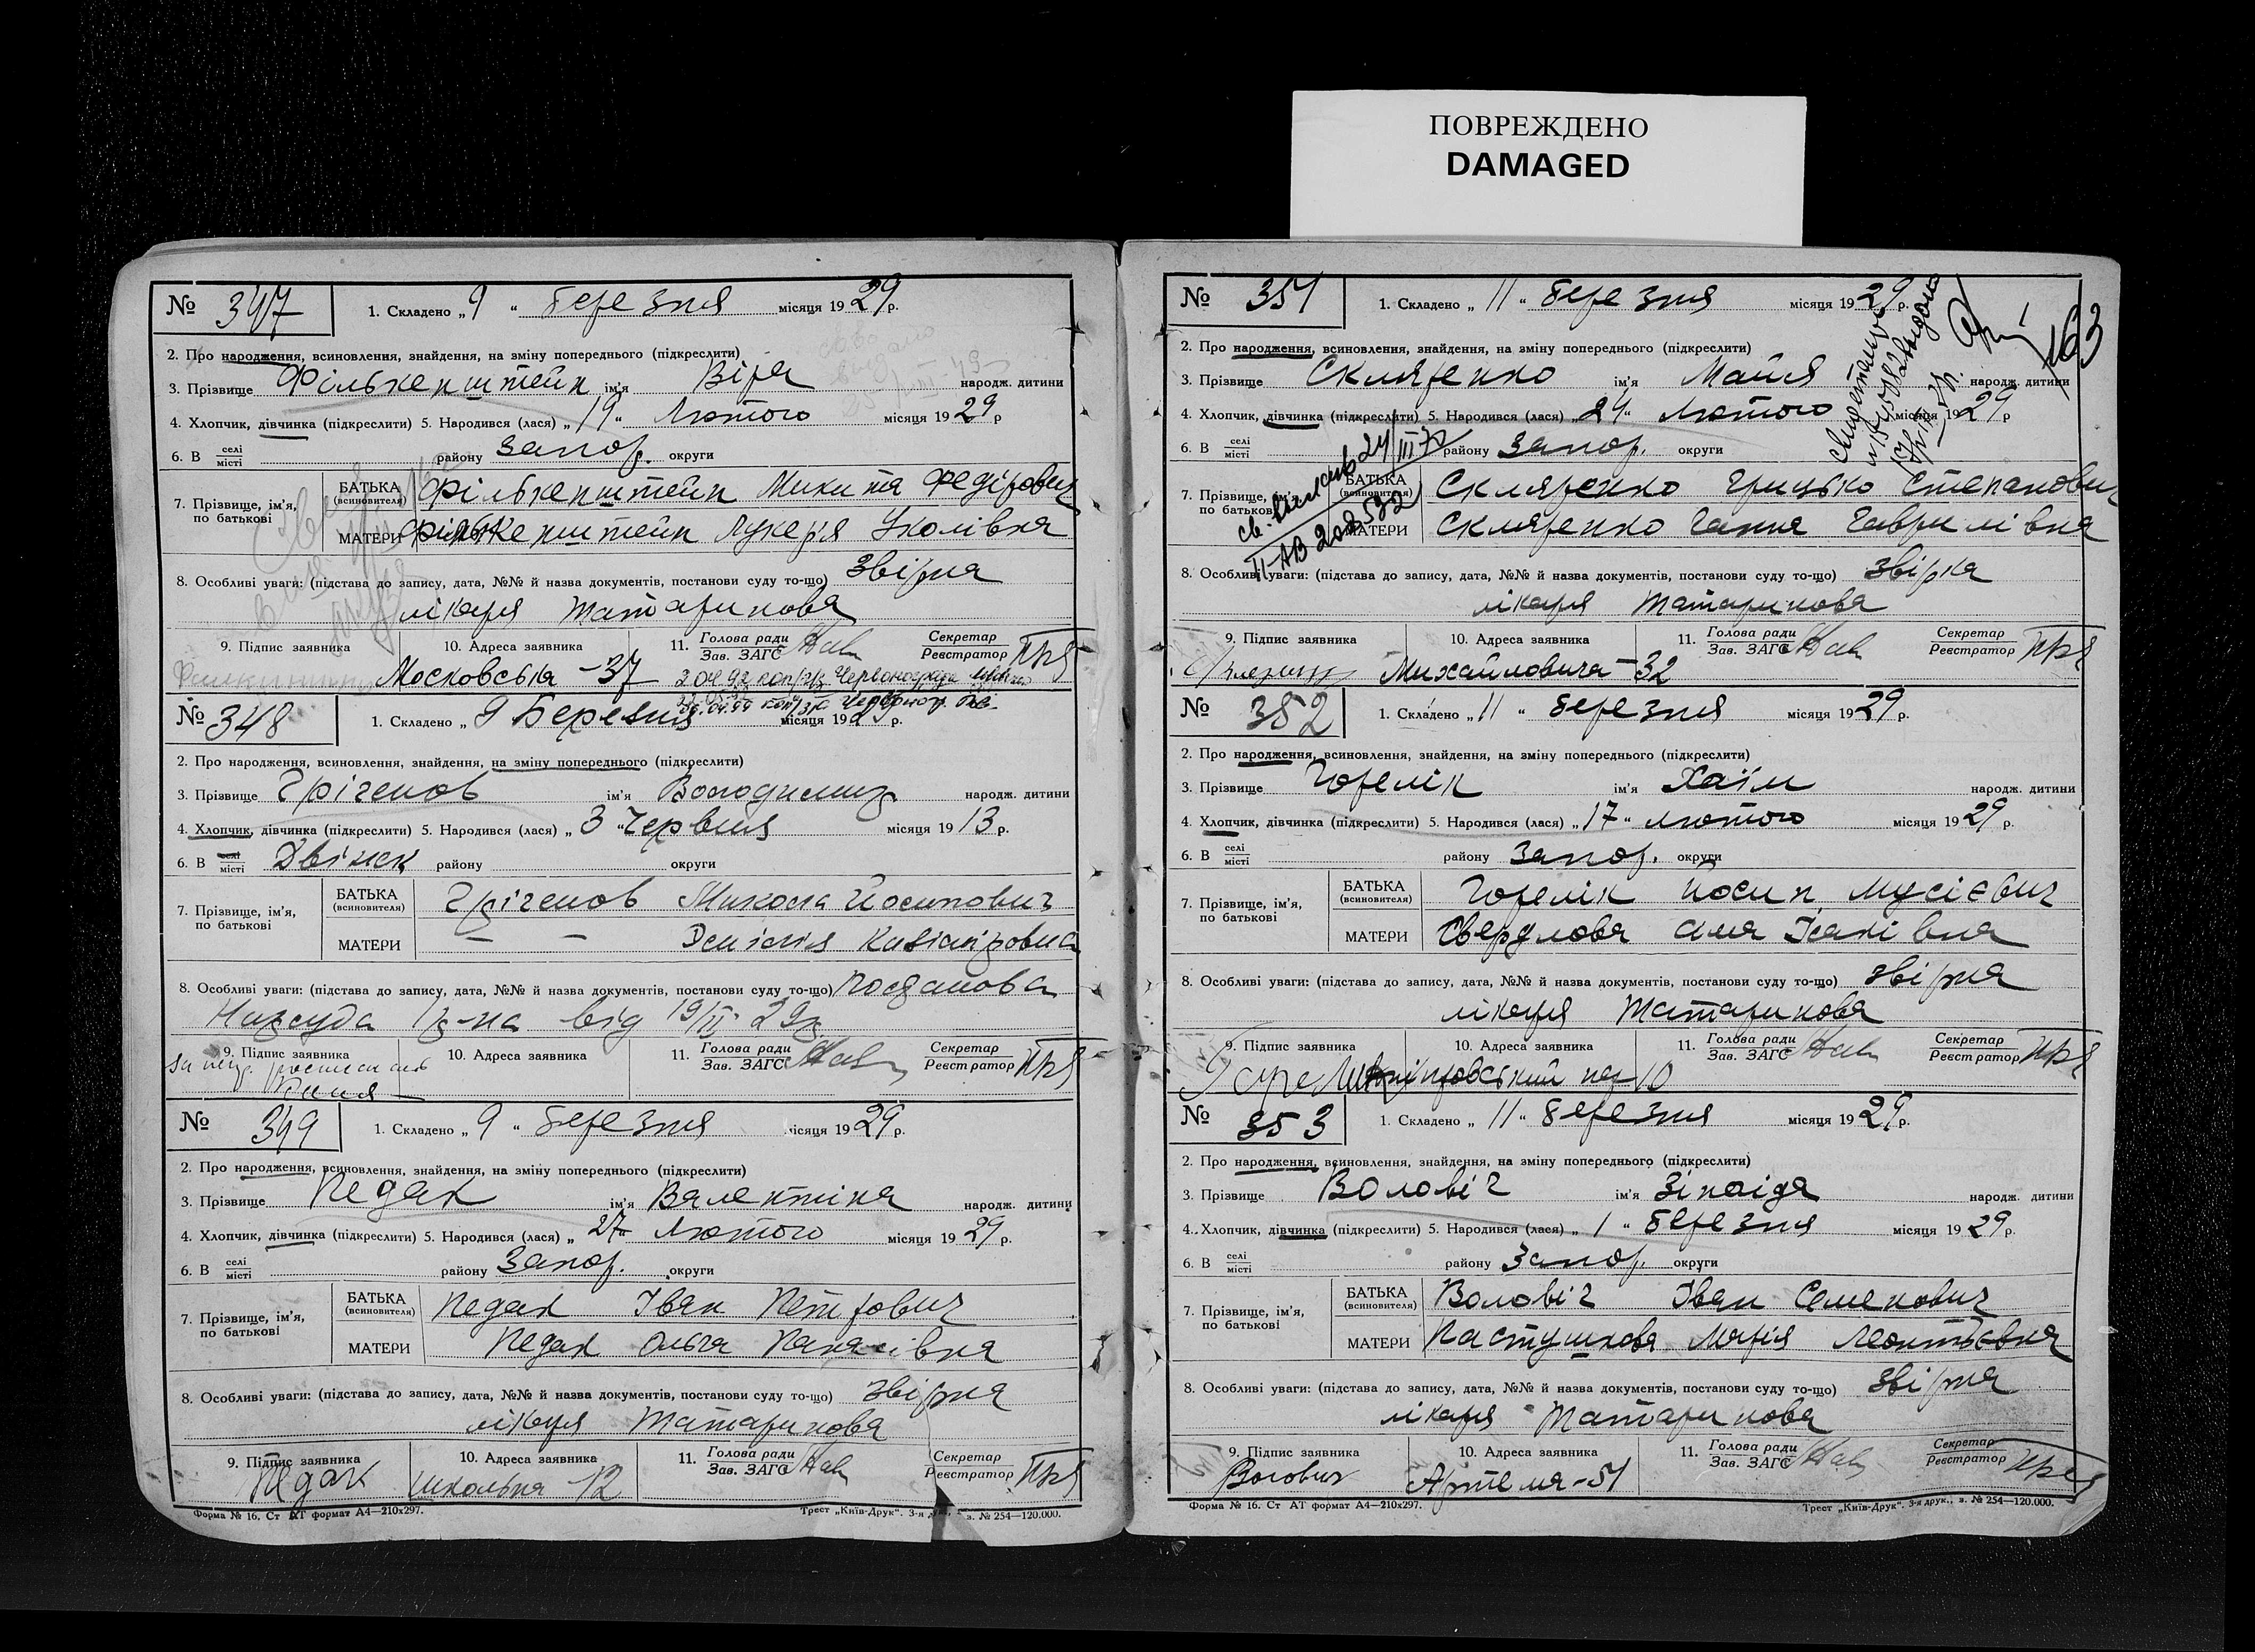 ПОВРЕЖДЕНО
DAMAGED
№ 347 1. Складено „9“ березня місяця 1929 р.
2. Про народження, всиновлення, знайдення, на зміну попереднього (підкреслити)
3. Прізвище Фількенштейн ім'я Віра народж. дитини
4. Хлопчик, дівчинка (підкреслити) 5. Народився (лася) „19“ Лютого місяця 1929 р
6. В селі місті району Запор. округи
7. Прізвище, ім'я, по батькові
БАТЬКА (всиновителя) Фількенштейн Микита Федірович
МАТЕРИ Фількенштейн Лукерія
8. Особливі уваги: (підстава до запису, дата, №№ й назва документів, постанови суду то-що) Звірка
лікаря Татаринова
9. Підпис заявника 10. Адреса заявника 11. Голова ради Зав. ЗАГС Секретар Реєстратор
Московська -37
№ 348 1. Складено „9 Березня місяця 1929 р.
2. Про народження, всиновлення, знайдення, на зміну попереднього (підкреслити)
3. Прізвище Гріченов ім'я Володимир народж. дитини
4. Хлопчик, дівчинка (підкреслити) 5. Народився (лася) „3“ Червня місяця 1913 р.
6. В селі місті Двінск району округи
7. Прізвище, ім'я, по батькові
БАТЬКА (всиновителя) Гріченов Микола Йосипович
МАТЕРИ – –
8. Особливі уваги: (підстава до запису, дата, №№ й назва документів, постанови суду то-що) Постанова
Нарсуда від
9. Підпис заявника 10. Адреса заявника 11. Голова ради Зав. ЗАГС Секретар Реєстратор
№ 349 1. Складено „9“ березня місяця 1929 р.
2. Про народження, всиновлення, знайдення, на зміну попереднього (підкреслити)
3. Прізвище Педак ім'я Валентіна народж. дитини
4. Хлопчик, дівчинка (підкреслити) 5. Народився (лася) „27“ Лютого місяця 1929 р.
6. В селі місті району Запор. округи
7. Прізвище, ім'я, по батькові
БАТЬКА (всиновителя) Педак Іван Петрович
МАТЕРИ Педак Ольга Панасівна
8. Особливі уваги: (підстава до запису, дата, №№ й назва документів, постанови суду то-що) Звірка
лікаря Татаринова
9. Підпис заявника 10. Адреса заявника 11. Голова ради Зав. ЗАГС Секретар Реєстратор
Педак Шкільна -12
Форма № 16. Ст АТ формат А4—210х297. Трест „Київ-Друк“. 3-я з. № 254—120.000.
163
№ 351 1. Складено „11“ березня місяця 1929 р.
2. Про народження, всиновлення, знайдення, на зміну попереднього (підкреслити)
3. Прізвище Скляренко ім'я Майя народж. дитини
4. Хлопчик, дівчинка (підкреслити) 5. Народився (лася) „24“ Лютого місяця 1929 р
6. В селі місті району Запор. округи
7. Прізвище, ім'я, по батькові
БАТЬКА (всиновителя) Скляренко Грицько Степанович
МАТЕРИ Скляренко Ганна Гаврилівна
8. Особливі уваги: (підстава до запису, дата, №№ й назва документів, постанови суду то-що) Звірка
лікаря Татаринова
9. Підпис заявника 10. Адреса заявника 11. Голова ради Зав. ЗАГС Секретар Реєстратор
Михайловича -32
№ 352 1. Складено „11“ березня місяця 1929 р.
2. Про народження, всиновлення, знайдення, на зміну попереднього (підкреслити)
3. Прізвище Горелік ім'я Хаїм народж. дитини
4. Хлопчик, дівчинка (підкреслити) 5. Народився (лася) „17“ лютого місяця 1929 р.
6. В селі місті району Запор. округи
7. Прізвище, ім'я, по батькові
БАТЬКА (всиновителя) Горелік Йосип Мусієвич
МАТЕРИ Свердлова
8. Особливі уваги: (підстава до запису, дата, №№ й назва документів, постанови суду то-що) звірка
лікаря Татаринова
9. Підпис заявника 10. Адреса заявника 11. Голова ради Зав. ЗАГС Секретар Реєстратор
№ 353 1. Складено „11“ березня місяця 1929 р.
2. Про народження, всиновлення, знайдення, на зміну попереднього (підкреслити)
3. Прізвище Воловіч ім'я Зінаіда народж. дитини
4. Хлопчик, дівчинка (підкреслити) 5. Народився (лася) „1“ березня місяця 1929 р.
6. В селі місті району Запор. округи
7. Прізвище, ім'я, по батькові
БАТЬКА (всиновителя) Воловіч Іван Семенович
МАТЕРИ Пастушкова Марія Леонтьєвна
8. Особливі уваги: (підстава до запису, дата, №№ й назва документів, постанови суду то-що) Звірка
лікаря Татаринова
9. Підпис заявника 10. Адреса заявника 11. Голова ради Зав. ЗАГС Секретар Реєстратор
Волович Артема -51
Форма № 16. Ст АТ формат А4—210х297. Трест „Київ-Друк“. 3-я друк., з. № 254—120.000.